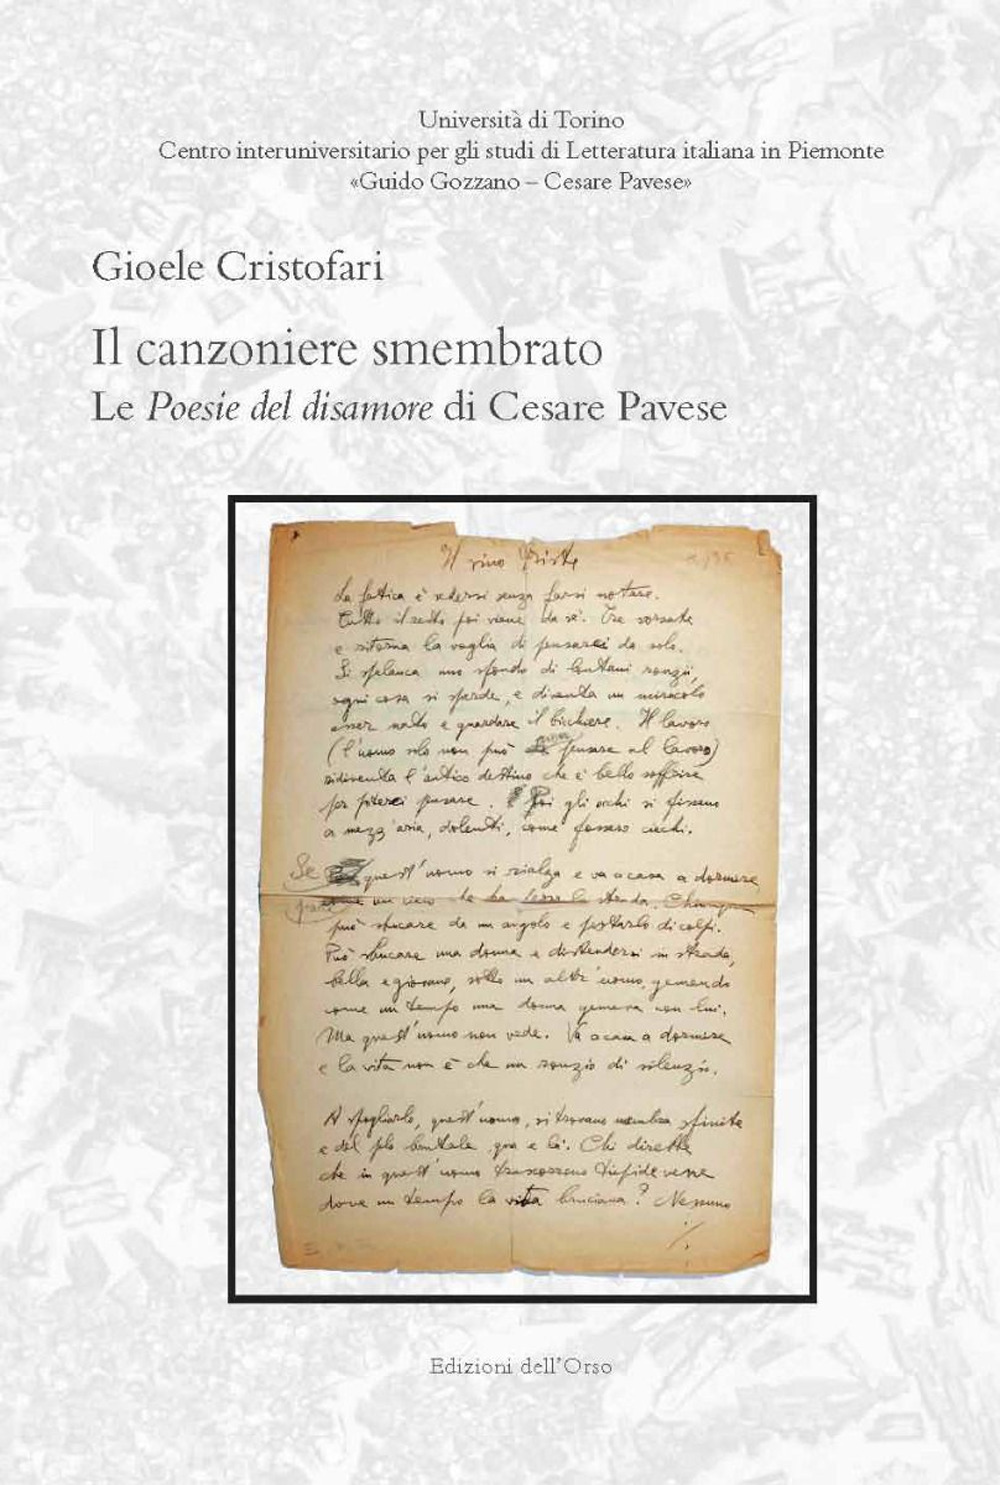 Università di Torino
Centro interuniversitario per gli studi di Letteratura italiana in Piemonte
«Guido Gozzano – Cesare Pavese»
Gioele Cristofari
Il canzoniere smembrato
Le Poesie del disamore di Cesare Pavese
Il vino triste
La fatica è sedersi senza farsi notare.
Tutto il resto poi viene da sé. Tre sorsate
e ritorna la voglia di pensarci da solo.
Si spalanca uno sfondo di lontani ronzii,
ogni cosa si sperde, e diventa un miracolo
esser nato e guardare il bicchiere. Il lavoro
(l'uomo solo non può pensare al lavoro)
ridiventa l'antico destino che è bello soffrire
per poterci pensare. Poi gli occhi si fissano
a mezz'aria, dolenti, come fossero ciechi.
Se quest'uomo si rialza e va a casa a dormire
pare un cieco che ha perso la strada. Chiunque
può sbucare da un angolo e pestarlo di colpi.
Può sbucare una donna e distendersi in strada,
bella e giovane, sotto un altr'uomo, gemendo
come un tempo una donna gemeva con lui.
Ma quest'uomo non vede. Va a casa a dormire
e la vita non è che un ronzio di silenzio.
A spogliarlo, quest'uomo, si trovano membra sfinite
e del pelo brutale, qua e là. Chi direbbe
che in quest'uomo trascorrono tiepide vene
dove un tempo la vita bruciava? Nessuno
./.
Edizioni dell'Orso